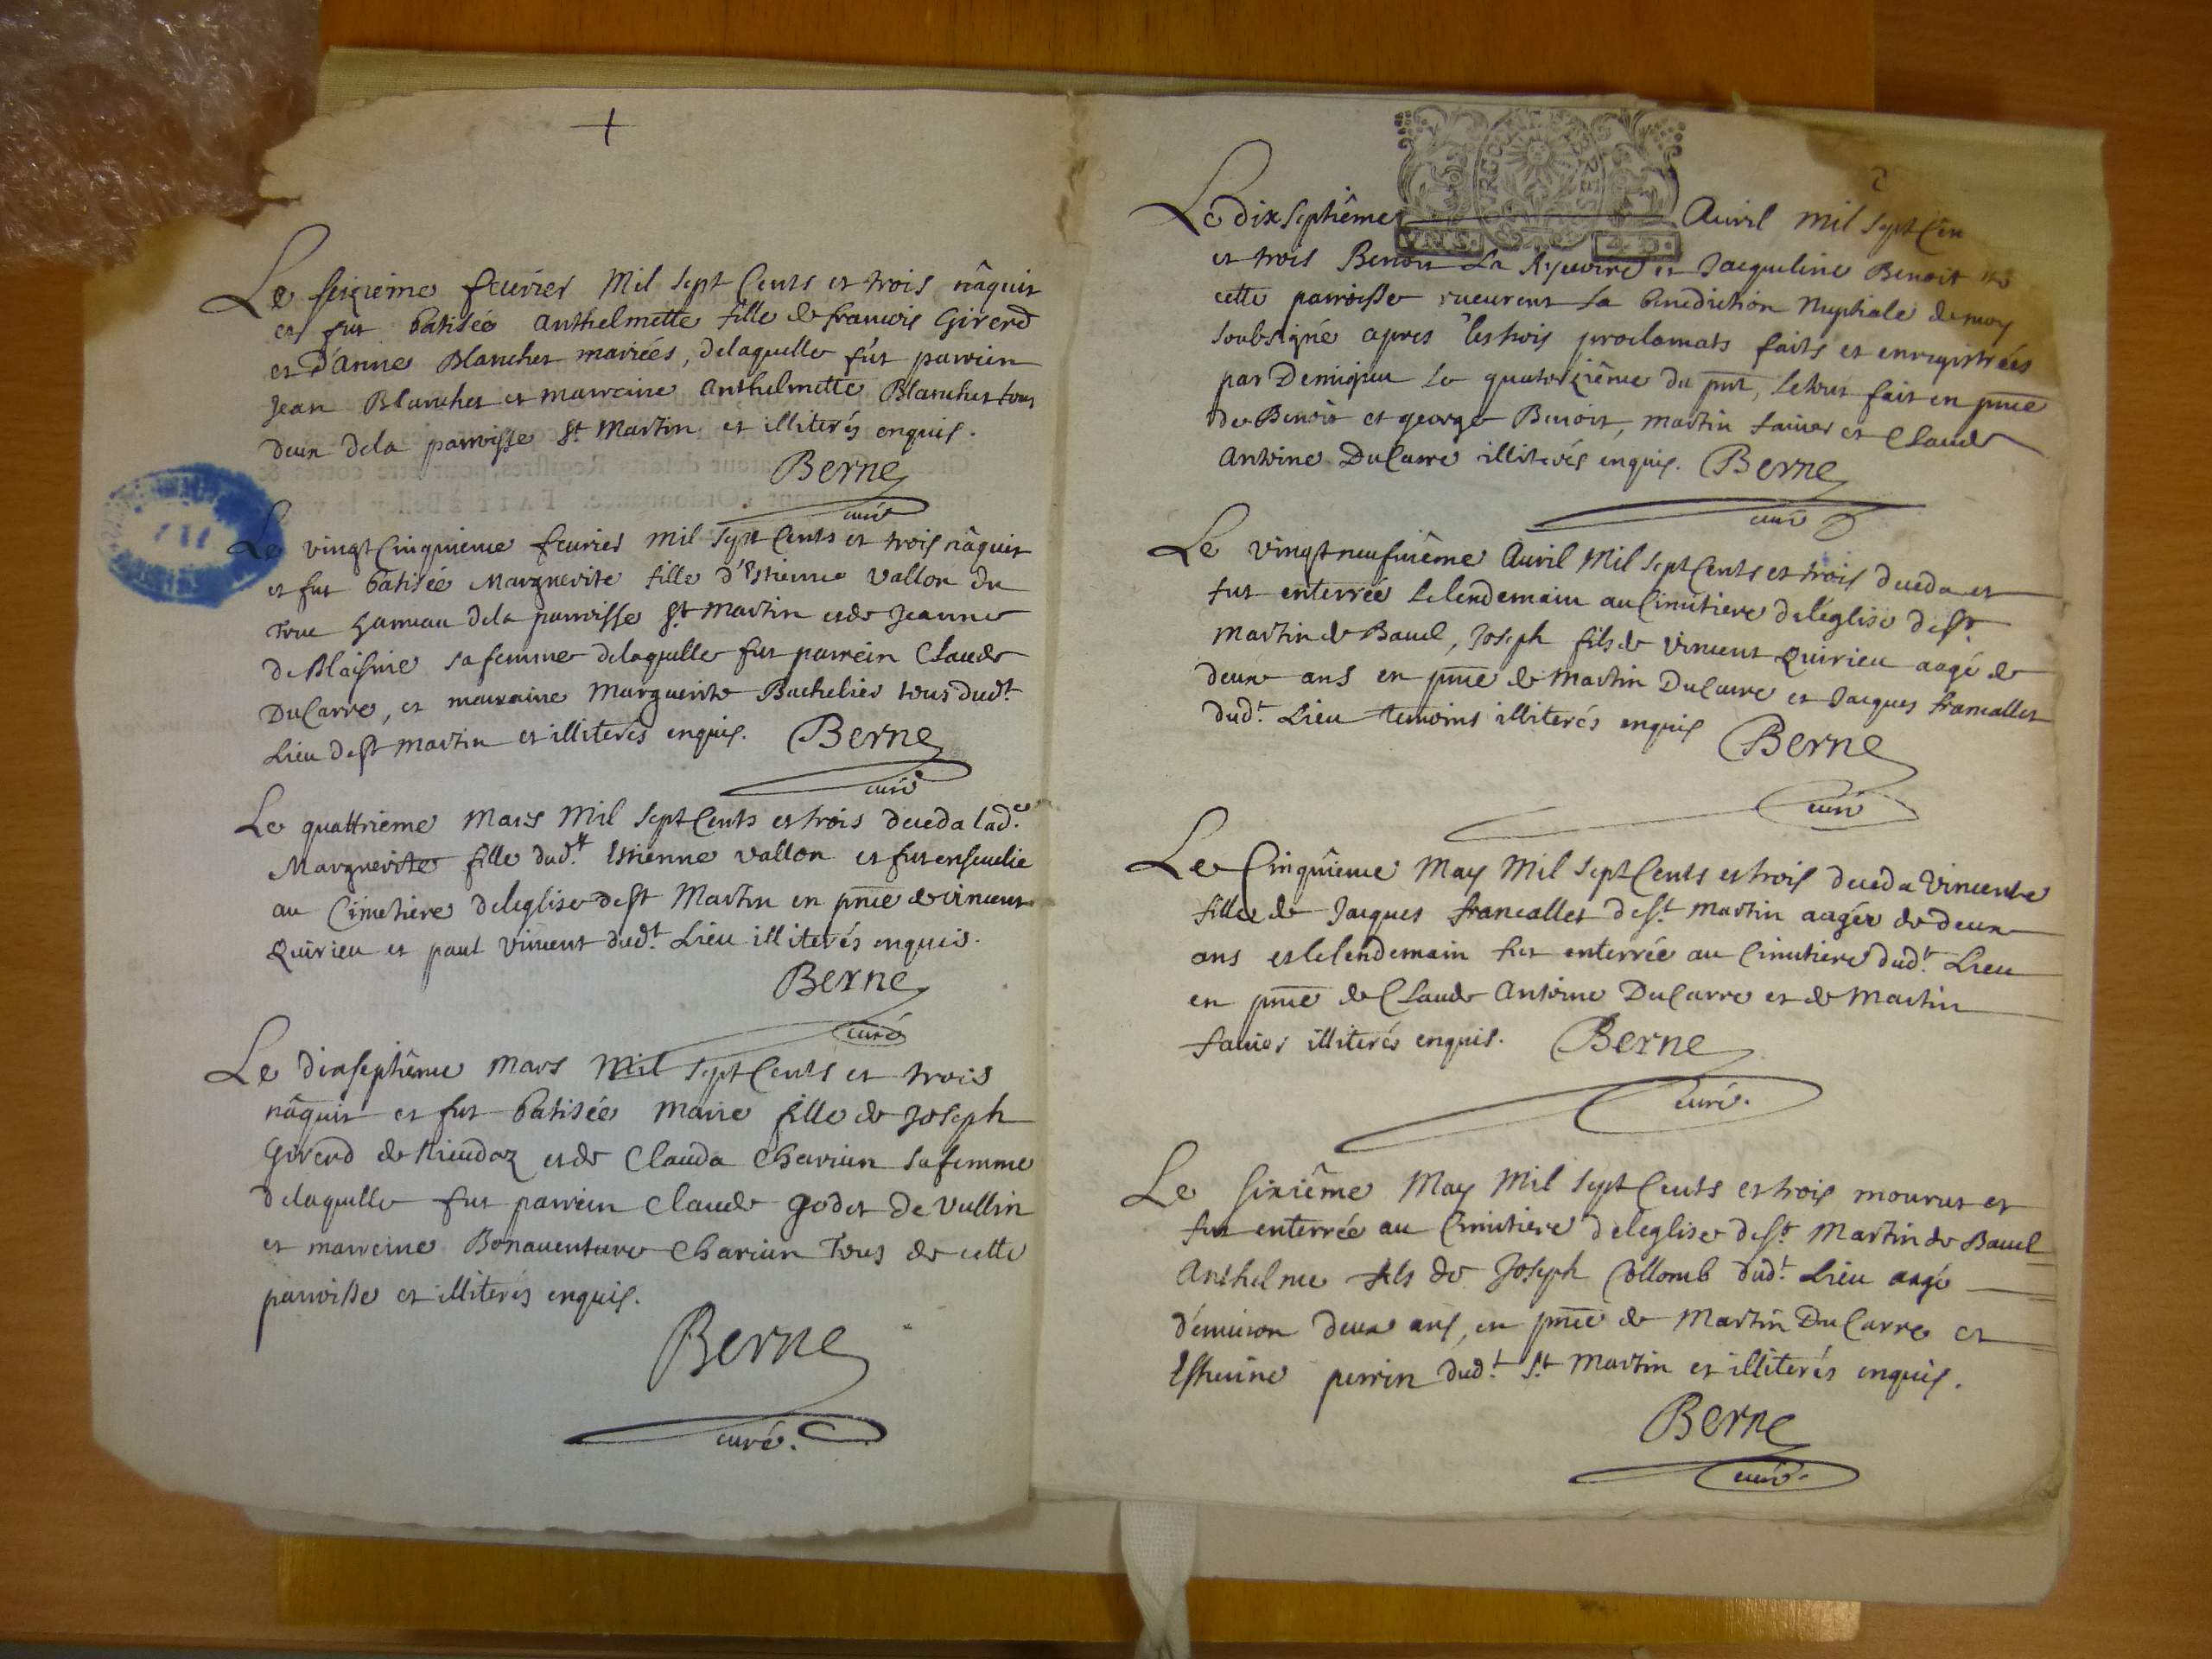 Le seizieme feurier Mil sept Cents et trois nâquit
et fut batisée anthelmette fille de francois Girerd
et d'Anne Blanchet mariées, delaquelle fut parrein
Jean Blanchet et marreine anthelmette Blanchet tous
deux dela parroisse St Martin et illiterés enquis.
Berne
curé
Le vingt Cinquieme feurier mil sept Cents et trois nâquit
et fut batisée Marguerite fille d'Estienne vallon du
hameau dela parroisse St Martin et de Jeanne
sa femme delaquelle fut parrein Claude
DuCarre, et marraine Marguerite Bachelier tous dudt
Lieu de St martin et illiterés enquis. Berne
curé
Le quattrieme Mars Mil sept Cents et trois deceda lade
Marguerite fille dudt Estienne vallon et fut enseuelie
au Cimetiere deleglise de St Martin en pnce de vincent
Quirieu et paul vincent dudt Lieu illiterés enquis.
Berne
curé
Le dixseptiême Mars Mil sept Cents et trois
nâquit et fut batisée Marie fille de Joseph
Girerd de et de Clauda sa femme
delaquelle fut parrein Claude godet de vullin
et marreine Bonauenture Tous de cette
parroisse et illiterés enquis.
Berne
curé.
2
Le dixseptiême Auril mil sept Cen
4 D.
et trois Benoit La et Jacqueline Benoit
cette parroisse receurent la benediction Nuptiale de moy
soubsigné apres les trois proclamats faits et enregistrées
par le quatorziême du pnt, le tout fait en pnce
de Benoit et george Benoit, martin fauier et Claude
Antoine DuCarre illiterés enquis. Berne
curé
Le vingt neufuiême Auril Mil sept Cents et trois deceda et
fut enterrée le lendemain au Cimetiere deléglise de St
Martin de Bauel, Joseph fils de vincent Quirieu aagé de
deux ans en pnce de Martin DuCarre et Jacques francallet
dudt Lieu temoins illiterés enquis Berne
curé
Le Cinquieme May Mil sept Cents et trois deceda Vincente
fille de Jacques francallet de St martin aagée de deux
ans et le lendemain fut enterrée au Cimetiere dudt Lieu
en pnce de Claude Antoine DuCarre et de Martin
fauier illiterés enquis. Berne
curé.
Le Sixiême May Mil sept Cents et trois mourut et
fut enterrée au Cimetiere deleglise de St Martin de Bauel
Anthelme fils de Joseph Collomb dudt Lieu aagé
d'enuiron deux ans, en pnce de Martin DuCarre et
Estienne perrin dudt St Martin et illiterés enquis.
Berne
curé.